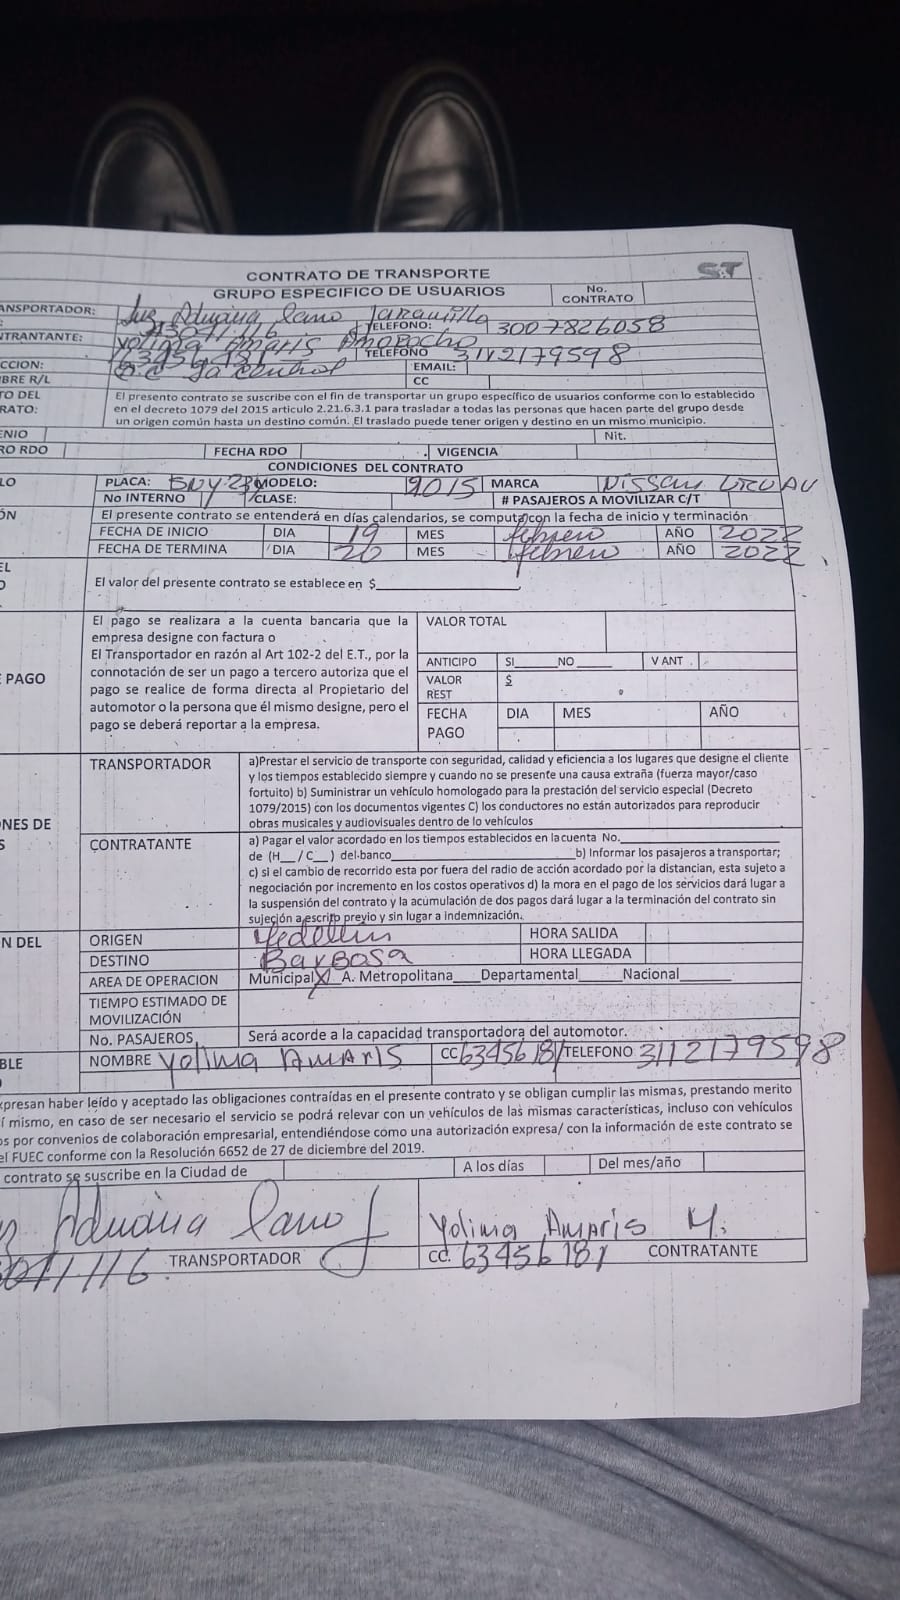 CONTRATO DE TRANSPORTE
S&T
GRUPO ESPECIFICO DE USUARIOS
No. CONTRATO
ANSPORTADOR: Luz Adriana Cano Jaramillo
TELEFONO: 3007826058
TRANTANTE: Yolima Amaris Amorocho
TELEFONO 3112179598
CCION: EMAIL:
BRE R/L CC
TO DEL El presente contrato se suscribe con el fin de transportar un grupo específico de usuarios conforme con lo establecido
RATO: en el decreto 1079 del 2015 articulo 2.21.6.3.1 para trasladar a todas las personas que hacen parte del grupo desde
un origen común hasta un destino común. El traslado puede tener origen y destino en un mismo municipio.
ENIO Nit.
RO RDO FECHA RDO VIGENCIA
CONDICIONES DEL CONTRATO
LO PLACA: MODELO: 2015 MARCA Nissan
No INTERNO CLASE: # PASAJEROS A MOVILIZAR C/T
ÓN El presente contrato se entenderá en días calendarios, se computa con la fecha de inicio y terminación
FECHA DE INICIO DIA 19 MES febrero AÑO 2022
FECHA DE TERMINA DIA 20 MES febrero AÑO 2022
EL
O El valor del presente contrato se establece en $
El pago se realizara a la cuenta bancaria que la
empresa designe con factura o
El Transportador en razón al Art 102-2 del E.T., por la
connotación de ser un pago a tercero autoriza que el
pago se realice de forma directa al Propietario del
automotor o la persona que él mismo designe, pero el
pago se deberá reportar a la empresa.
E PAGO
VALOR TOTAL
ANTICIPO SI NO V ANT
VALOR REST $
FECHA PAGO DIA MES AÑO
NES DE
S
TRANSPORTADOR
a)Prestar el servicio de transporte con seguridad, calidad y eficiencia a los lugares que designe el cliente
y los tiempos establecido siempre y cuando no se presente una causa extraña (fuerza mayor/caso
fortuito) b) Suministrar un vehículo homologado para la prestación del servicio especial (Decreto
1079/2015) con los documentos vigentes C) los conductores no están autorizados para reproducir
obras musicales y audiovisuales dentro de lo vehículos
CONTRATANTE
a) Pagar el valor acordado en los tiempos establecidos en la cuenta No.
de (H__/C__) del banco b) Informar los pasajeros a transportar;
c) si el cambio de recorrido esta por fuera del radio de acción acordado por la distancian, esta sujeto a
negociación por incremento en los costos operativos d) la mora en el pago de los servicios dará lugar a
la suspensión del contrato y la acumulación de dos pagos dará lugar a la terminación del contrato sin
sujeción a escrito previo y sin lugar a indemnización.
N DEL ORIGEN Medellin HORA SALIDA
DESTINO Barbosa HORA LLEGADA
AREA DE OPERACION Municipal X A. Metropolitana Departamental Nacional
TIEMPO ESTIMADO DE
MOVILIZACIÓN
No. PASAJEROS Será acorde a la capacidad transportadora del automotor.
BLE NOMBRE Yolima Amaris CC 63456181 TELEFONO 3112179598
xpresan haber leído y aceptado las obligaciones contraídas en el presente contrato y se obligan cumplir las mismas, prestando merito
í mismo, en caso de ser necesario el servicio se podrá relevar con un vehículos de las mismas características, incluso con vehículos
os por convenios de colaboración empresarial, entendiéndose como una autorización expresa/ con la información de este contrato se
el FUEC conforme con la Resolución 6652 de 27 de diciembre del 2019.
contrato se suscribe en la Ciudad de A los días Del mes/año
Adriana Cano J
Yolima Amaris M.
TRANSPORTADOR
CC. 63456181 CONTRATANTE